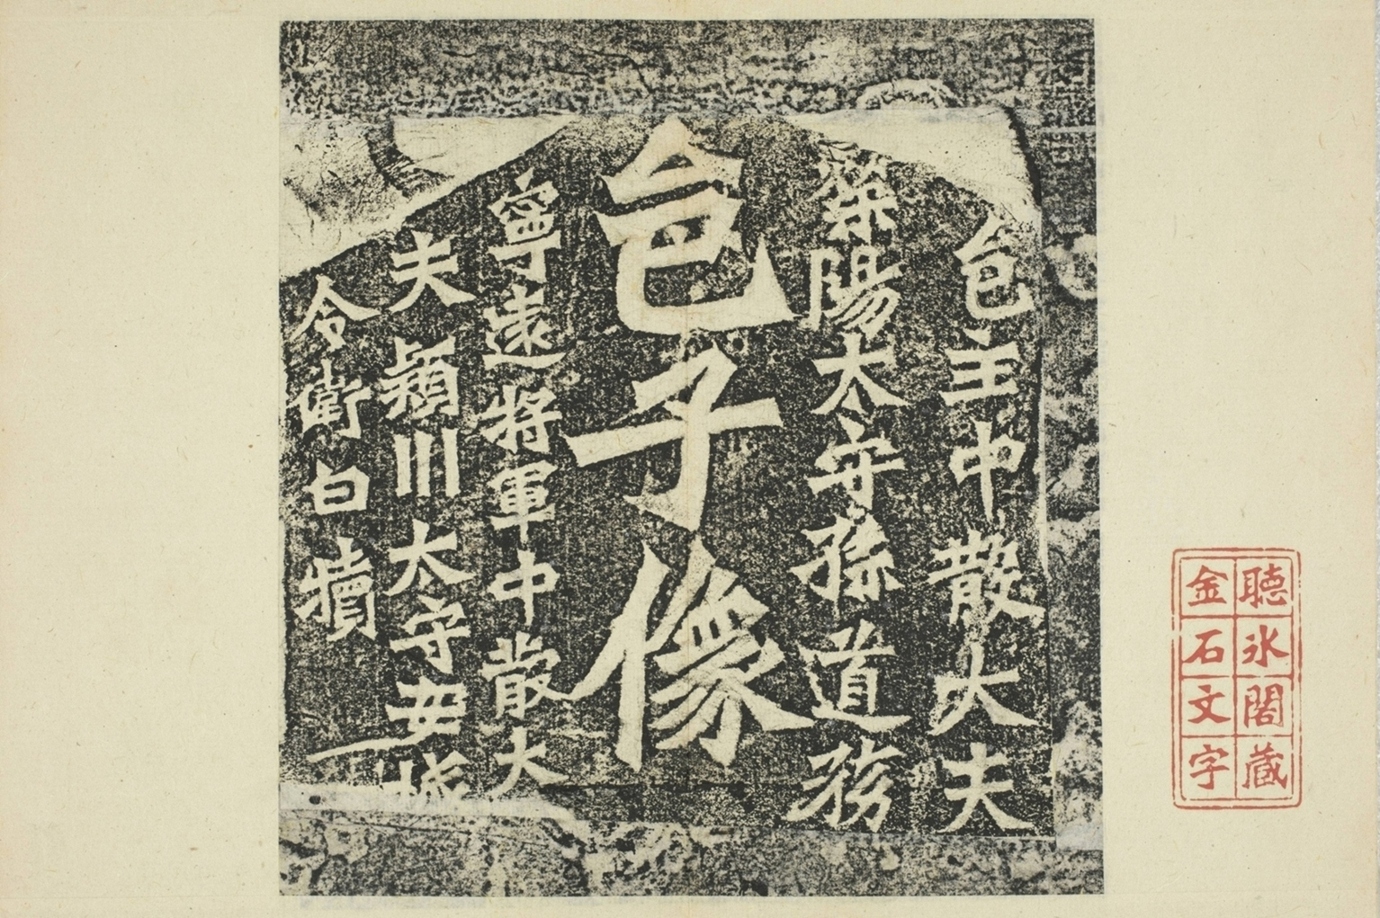 邑主中散大夫
滎陽太守孫道務
邑子像
寧遠將軍中散大
夫穎川太守安城
令衛白犢
聽氷閣藏
金石文字